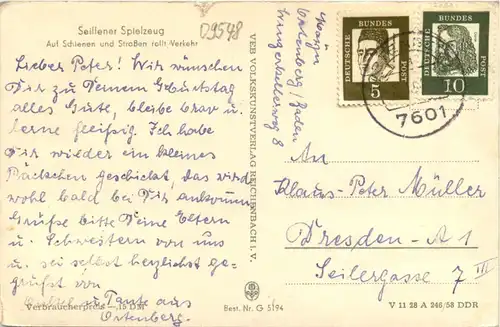 Seiffener Spielzeug
Auf Schienen und Straßen rollt Verkehr
09548
Lieber Peter! Wir wünschen
Dir zu Deinem Geburtstag
alles Gute, bleibe brav u.
lerne fleißig. Ich habe
Dir wieder ein kleines
Päckchen geschickt, das wird
wohl bald bei Dir ankommen
Grüße bitte Deine Eltern
u. Schwestern von uns
u. sei selbst herzlichst ge-
grüßt von
u. Tante aus
Ortenberg.
Verbraucherpreis — 15 DM
VEB VOLKSKUNSTVERLAG REICHENBACH I. V.
Best. Nr. G 5194
Ortenberg/Baden
Winzerkellerweg 8
DEUTSCHE BUNDES POST
5
DEUTSCHE BUNDES POST
10
7601
An
Klaus-Peter Müller
Dresden-A 1
Seilergasse 7 III
V 11 28 A 246/58 DDR